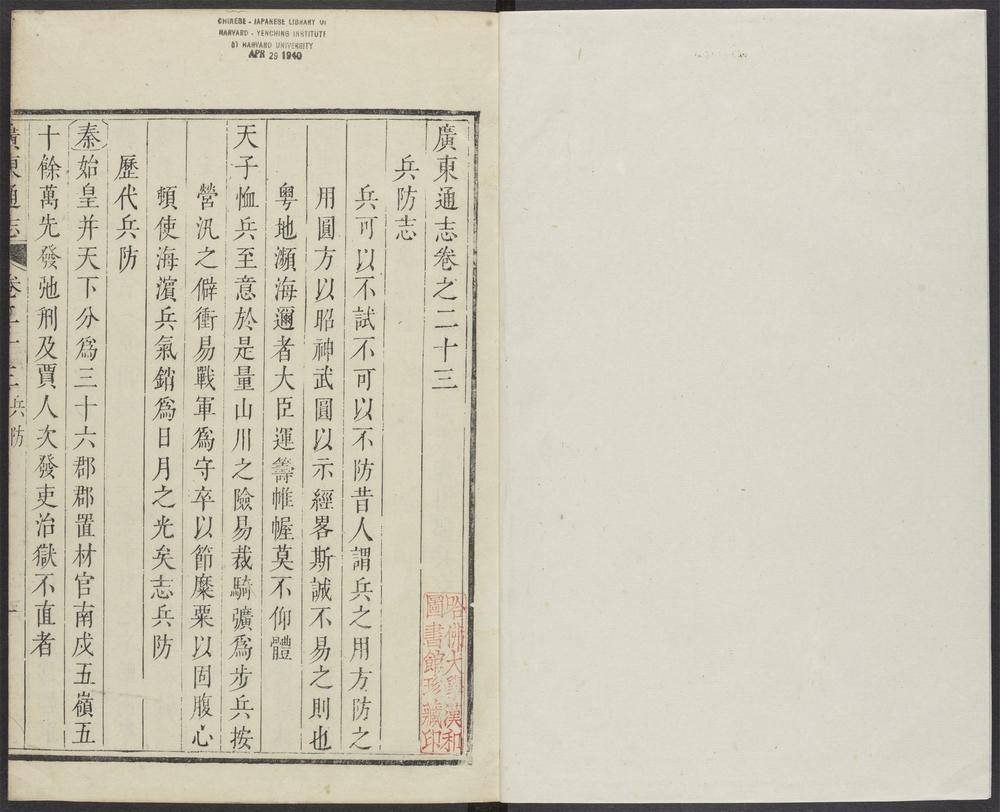 CHINESE - JAPANESE LIBRARY OF
HARVARD - YENCHING INSTITUTE
AT HARVARD UNIVERSITY
APR 29 1940
廣東通志卷之二十三
兵防志
兵可以不試不可以不防昔人謂兵之用方防之
用圓方以昭神武圓以示經畧斯誠不易之則也
粤地瀕海邇者大臣運籌帷幄莫不仰體
天子恤兵至意於是量山川之險易裁騎彍爲步兵按
營汛之僻衝易戰軍爲守卒以節糜粟以固腹心
頓使海濵兵氣銷爲日月之光矣志兵防
歷代兵防
秦始皇并天下分爲三十六郡郡置材官南戍五嶺五
十餘萬先發弛刑及賈人次發吏治獄不直者
廣東通志 卷二十三 兵防 一
哈佛大學漢和
圖書館珍藏印